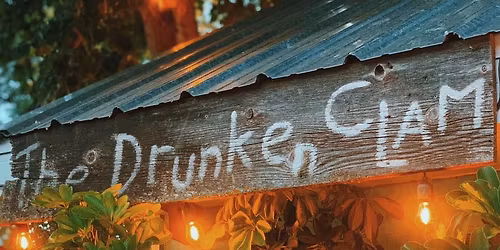 The Drunken CLAM